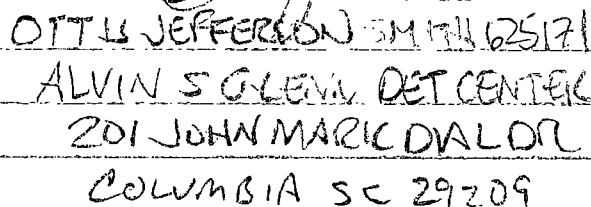 OTTIS JEFFERSON SMITH 625171
ALVIN S GLENN DET CENTER
201 JOHN MARK DIAL DR
COLUMBIA SC 29209